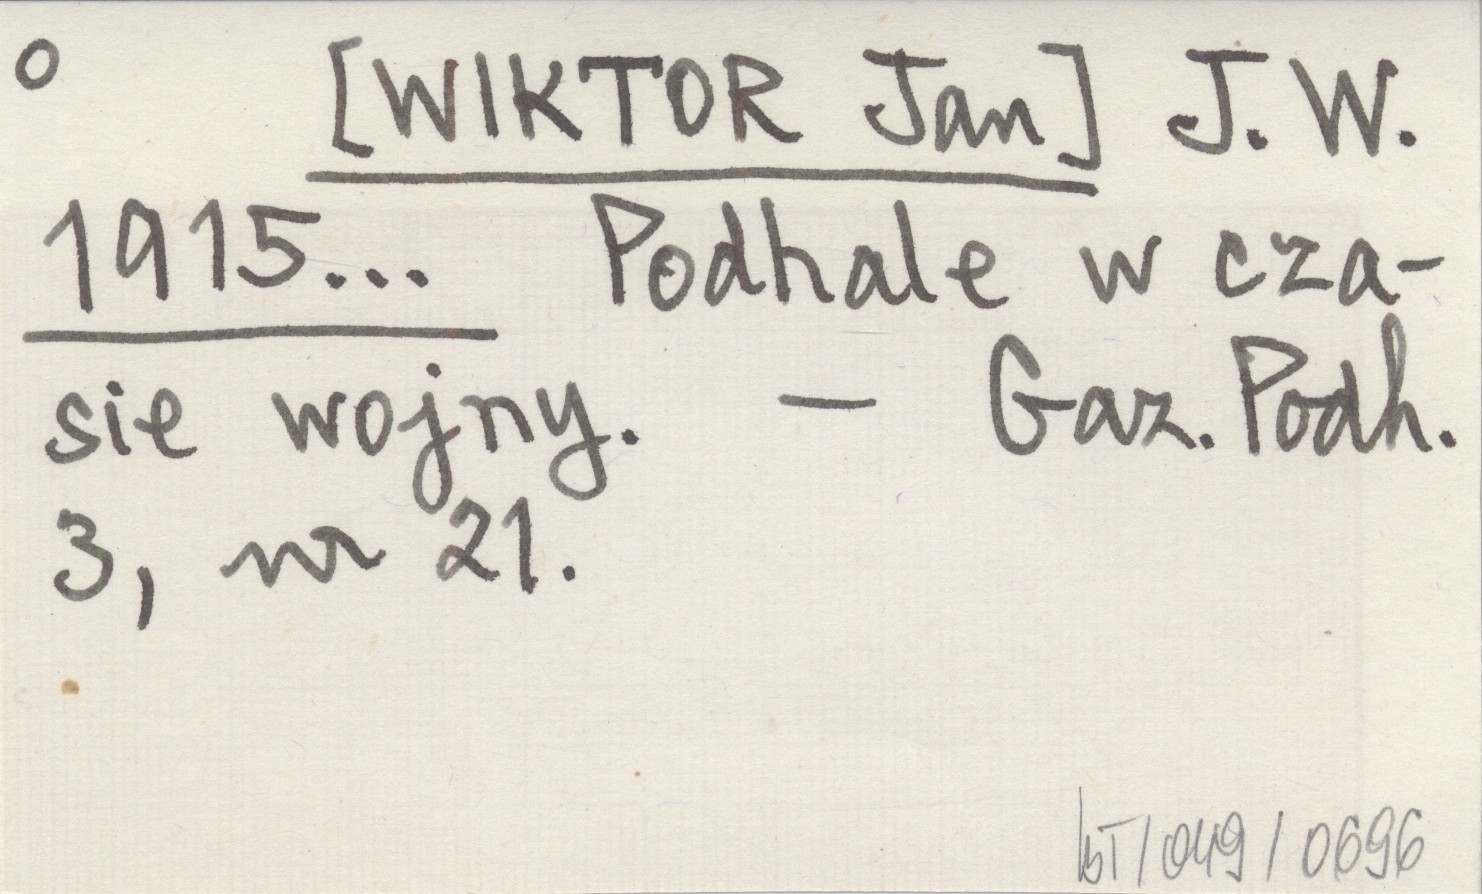 o [WIKTOR Jan] J. W.
1915... Podhale w cza-
sie wojny. — Gaz. Podh.
3, nr 21.
bT/049/0696